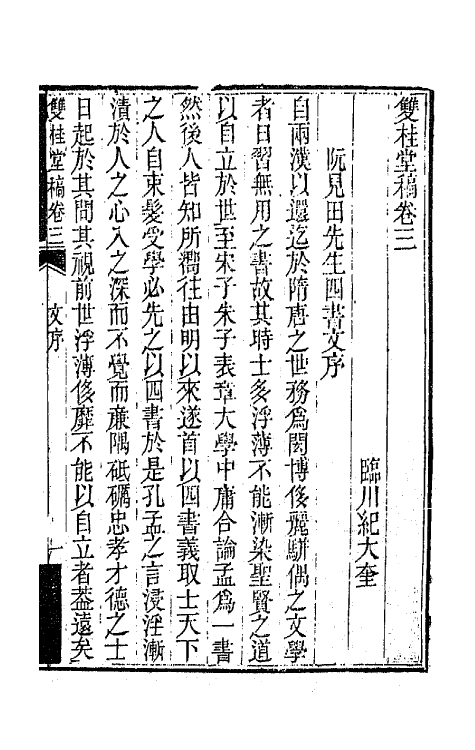 雙桂堂稿卷三
臨川紀大奎
阮見田先生四書文序
自兩漢以還迄於隋唐之世務爲閎博侈麗駢偶之文學
者日習無用之書故其時士多浮薄不能漸染聖賢之道
以自立於世至宋子朱子表章大學中庸合論孟爲一書
然後人皆知所嚮往由明以來遂首以四書義取士天下
之人自束髮受學必先之以四書於是孔孟之言浸淫漸
漬於人之心入之深而不覺而亷隅砥礪忠孝才德之士
日起於其間其視前世浮薄侈靡不能以自立者葢遠矣
雙桂堂稿卷三
文序
一